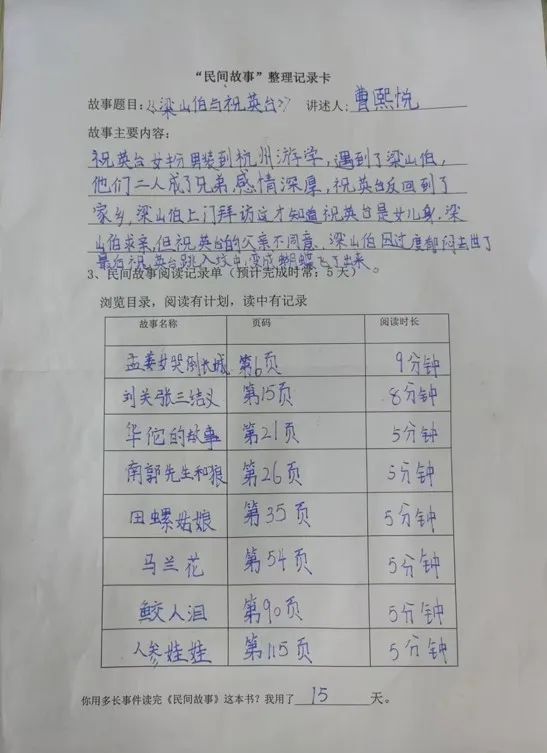 “民间故事”整理记录卡
故事题目:《梁山伯与祝英台》 讲述人:曹熙悦
故事主要内容:
祝英台女扮男装到杭州游学,遇到了梁山伯,
他们二人成了兄弟感情深厚,祝英台反回到了
家乡,梁山伯上门拜访这才知道祝英台是女儿身,梁
山伯求亲,但祝英台的父亲不同意,梁山伯因过度郁闷去世了
最后祝英台跳入坟中,变成蝴蝶飞了出来
3、民间故事阅读记录单(预计完成时常:5天)。
浏览目录,阅读有计划,读中有记录
故事名称 页码 阅读时长
孟姜女哭倒长城 第6页 9分钟
刘关张三结义 第15页 8分钟
华佗的故事 第21页 5分钟
南郭先生和狼 第26页 5分钟
田螺姑娘 第35页 5分钟
马兰花 第54页 5分钟
鲛人泪 第90页 5分钟
人参娃娃 第115页 5分钟
你用多长事件读完《民间故事》这本书?我用了 15 天。